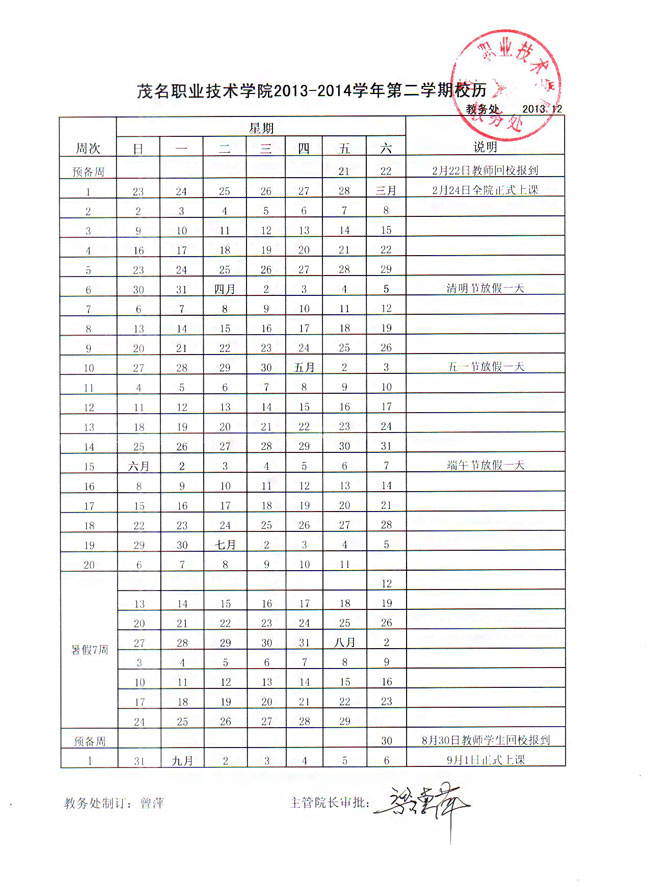 茂名职业技术学院2013-2014学年第二学期校历
教务处 2013.12
职业技术学
教务处
周次 星期 说明
日 一 二 三 四 五 六
预备周 21 22 2月22日教师回校报到
1 23 24 25 26 27 28 三月 2月24日全院正式上课
2 2 3 4 5 6 7 8
3 9 10 11 12 13 14 15
4 16 17 18 19 20 21 22
5 23 24 25 26 27 28 29
6 30 31 四月 2 3 4 5 清明节放假一天
7 6 7 8 9 10 11 12
8 13 14 15 16 17 18 19
9 20 21 22 23 24 25 26
10 27 28 29 30 五月 2 3 五一节放假一天
11 4 5 6 7 8 9 10
12 11 12 13 14 15 16 17
13 18 19 20 21 22 23 24
14 25 26 27 28 29 30 31
15 六月 2 3 4 5 6 7 端午节放假一天
16 8 9 10 11 12 13 14
17 15 16 17 18 19 20 21
18 22 23 24 25 26 27 28
19 29 30 七月 2 3 4 5
20 6 7 8 9 10 11
12
13 14 15 16 17 18 19
20 21 22 23 24 25 26
暑假7周 27 28 29 30 31 八月 2
3 4 5 6 7 8 9
10 11 12 13 14 15 16
17 18 19 20 21 22 23
24 25 26 27 28 29
预备周 30 8月30日教师学生回校报到
1 31 九月 2 3 4 5 6 9月1日正式上课
教务处制订：曾萍 主管院长审批：